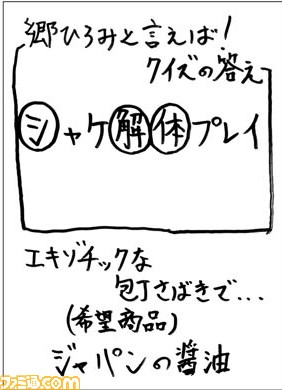 郷ひろみと言えば!
クイズの答え
シャケ解体プレイ
エキゾチックな
包丁さばきで...
(希望商品)
ジャパンの醤油
ファミ通.com